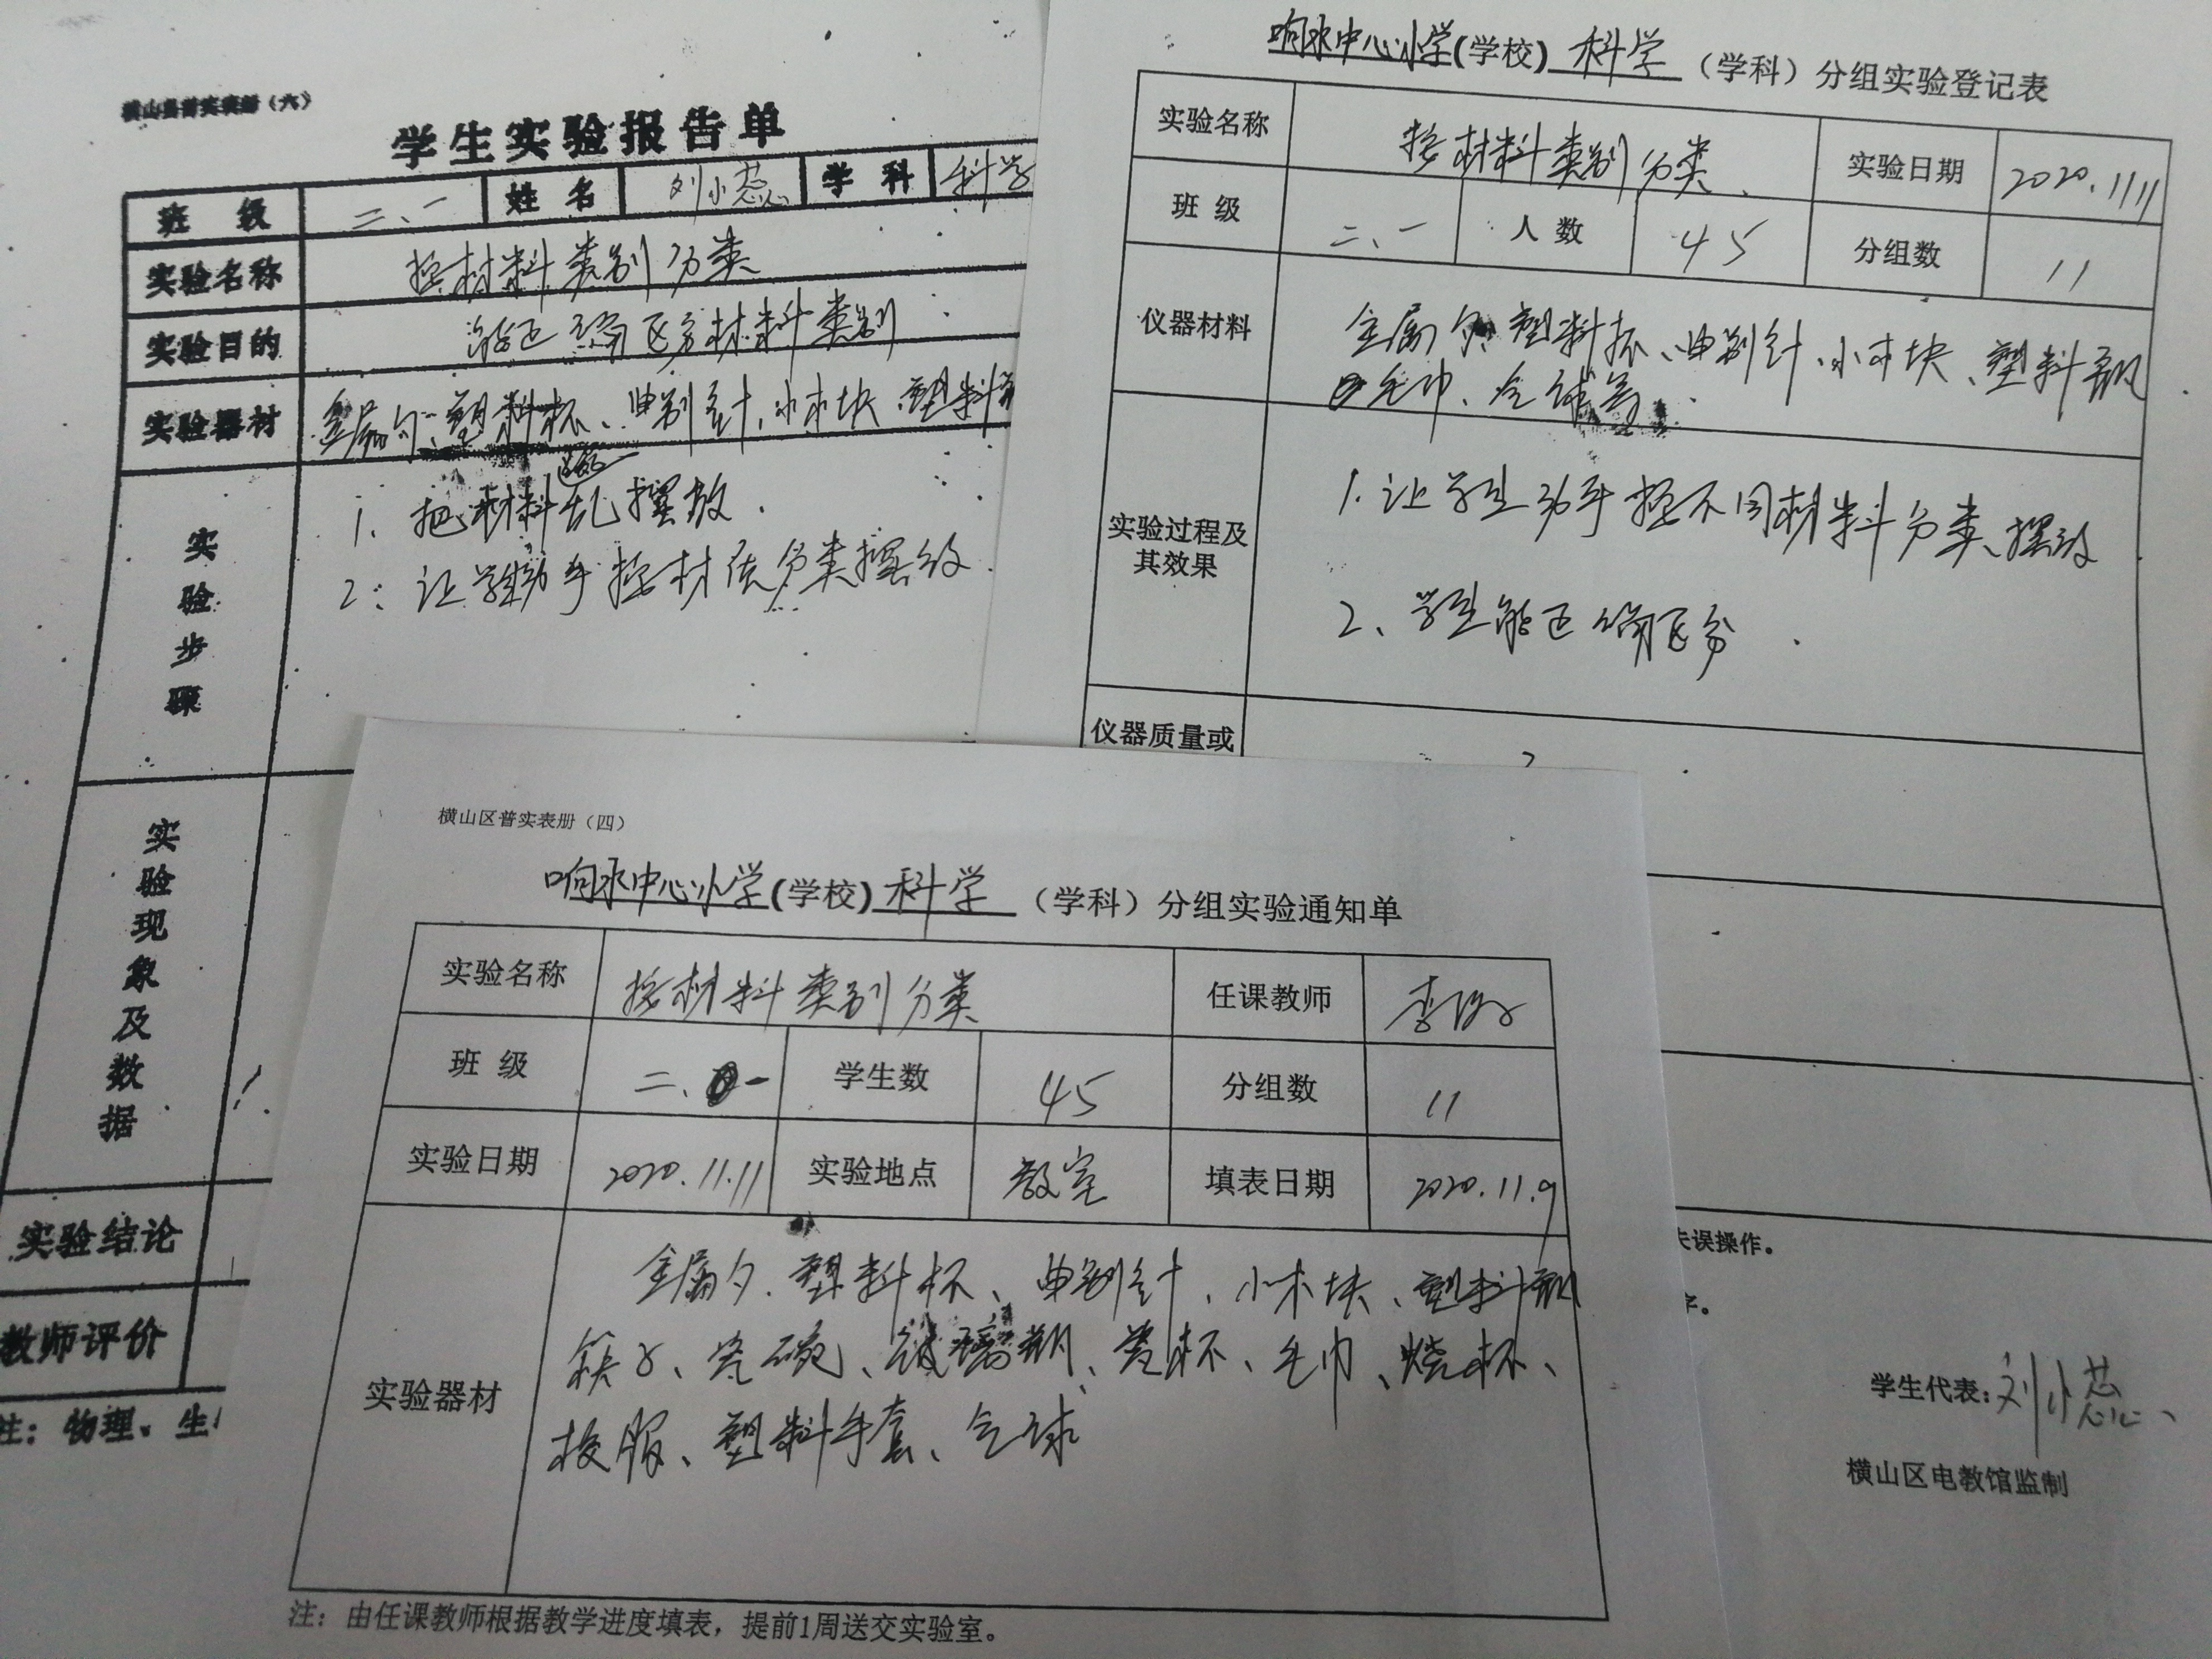 横山县普实表册（六）
学生实验报告单
班 级 二、一 姓 名 刘小蕊 学 科 科学
实验名称 按材料类别分类
实验目的 能正确区分材料类别
实验器材 金属勺、塑料杯、曲别针、小木块、塑料
实验步骤
1. 把材料乱摆放.
2: 让学生动手按材质分类摆放
实验现象及数据
1.
实验结论
教师评价
注：物理、生
响水中心小学(学校) 科学 （学科）分组实验登记表
实验名称 按材料类别分类、 实验日期 2020.11.11
班 级 二、一 人 数 45 分组数 11
仪器材料 金属勺、塑料杯、曲别针、小木块、塑料瓶
毛巾、气球等.
实验过程及其效果
1. 让学生动手按不同材料分类、摆放
2、学生能正确区分.
仪器质量或
失误操作。
字。
学生代表：刘小蕊、
横山区电教馆监制
横山区普实表册（四）
响水中心小学(学校) 科学 （学科）分组实验通知单
实验名称 按材料类别分类 任课教师 李
班 级 二、一 学生数 45 分组数 11
实验日期 2020.11.11 实验地点 教室 填表日期 2020.11.9
实验器材 金属勺.塑料杯、曲别针、小木块、塑料瓶
筷子、瓷碗、玻璃瓶、瓷杯、毛巾、烧杯、
校服、塑料手套、气球
注：由任课教师根据教学进度填表，提前1周送交实验室。